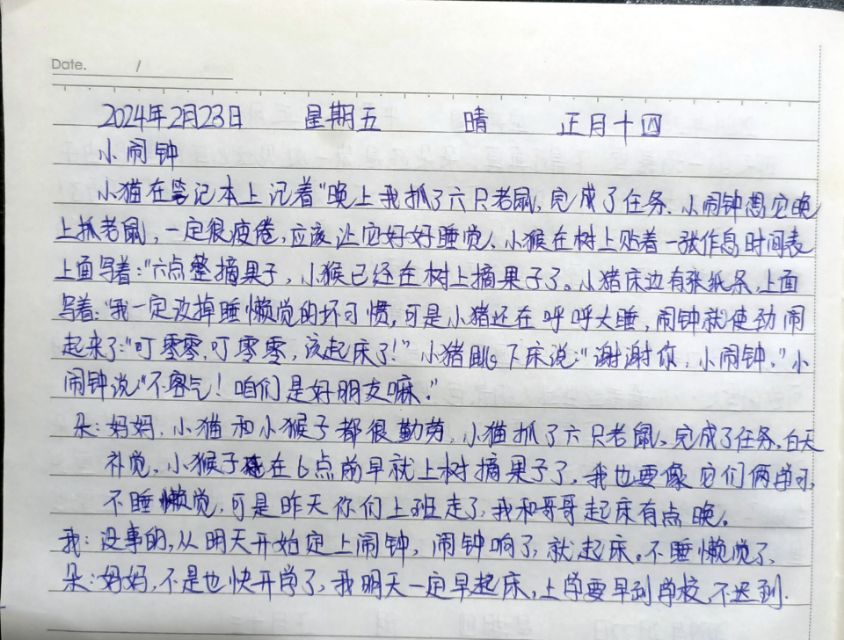 Date. /
2024年2月23日 星期五 晴 正月十四
小闹钟
小猫在笔记本上记着"晚上我抓了六只老鼠,完成了任务.小闹钟想见晚
上抓老鼠,一定很疲倦,应该让它好好睡觉。小猴在树上贴着一张作息时间表
上面写着:"六点整摘果子,小猴已经在树上摘果子了。小猪床边有张纸条,上面
写着:"我一定改掉睡懒觉的坏习惯,可是小猪还在呼呼大睡,闹钟就使劲闹
起来了:"叮零零,叮零零,该起床了!"小猪跳下床说:"谢谢你,小闹钟,"小
闹钟说"不客气!咱们是好朋友嘛."
朵:妈妈,小猫和小猴子都很勤劳,小猫抓了六只老鼠,完成了任务,白天
补觉,小猴子在6点前早就上树摘果子了,我也要像它们俩学习,
不睡懒觉,可是昨天你们上班走了,我和哥哥起床有点晚。
我:没事的,从明天开始定上闹钟,闹钟响了,就起床,不睡懒觉了.
朵:妈妈,不是也快开学了,我明天一定早起床,上学要早到学校,不迟到.